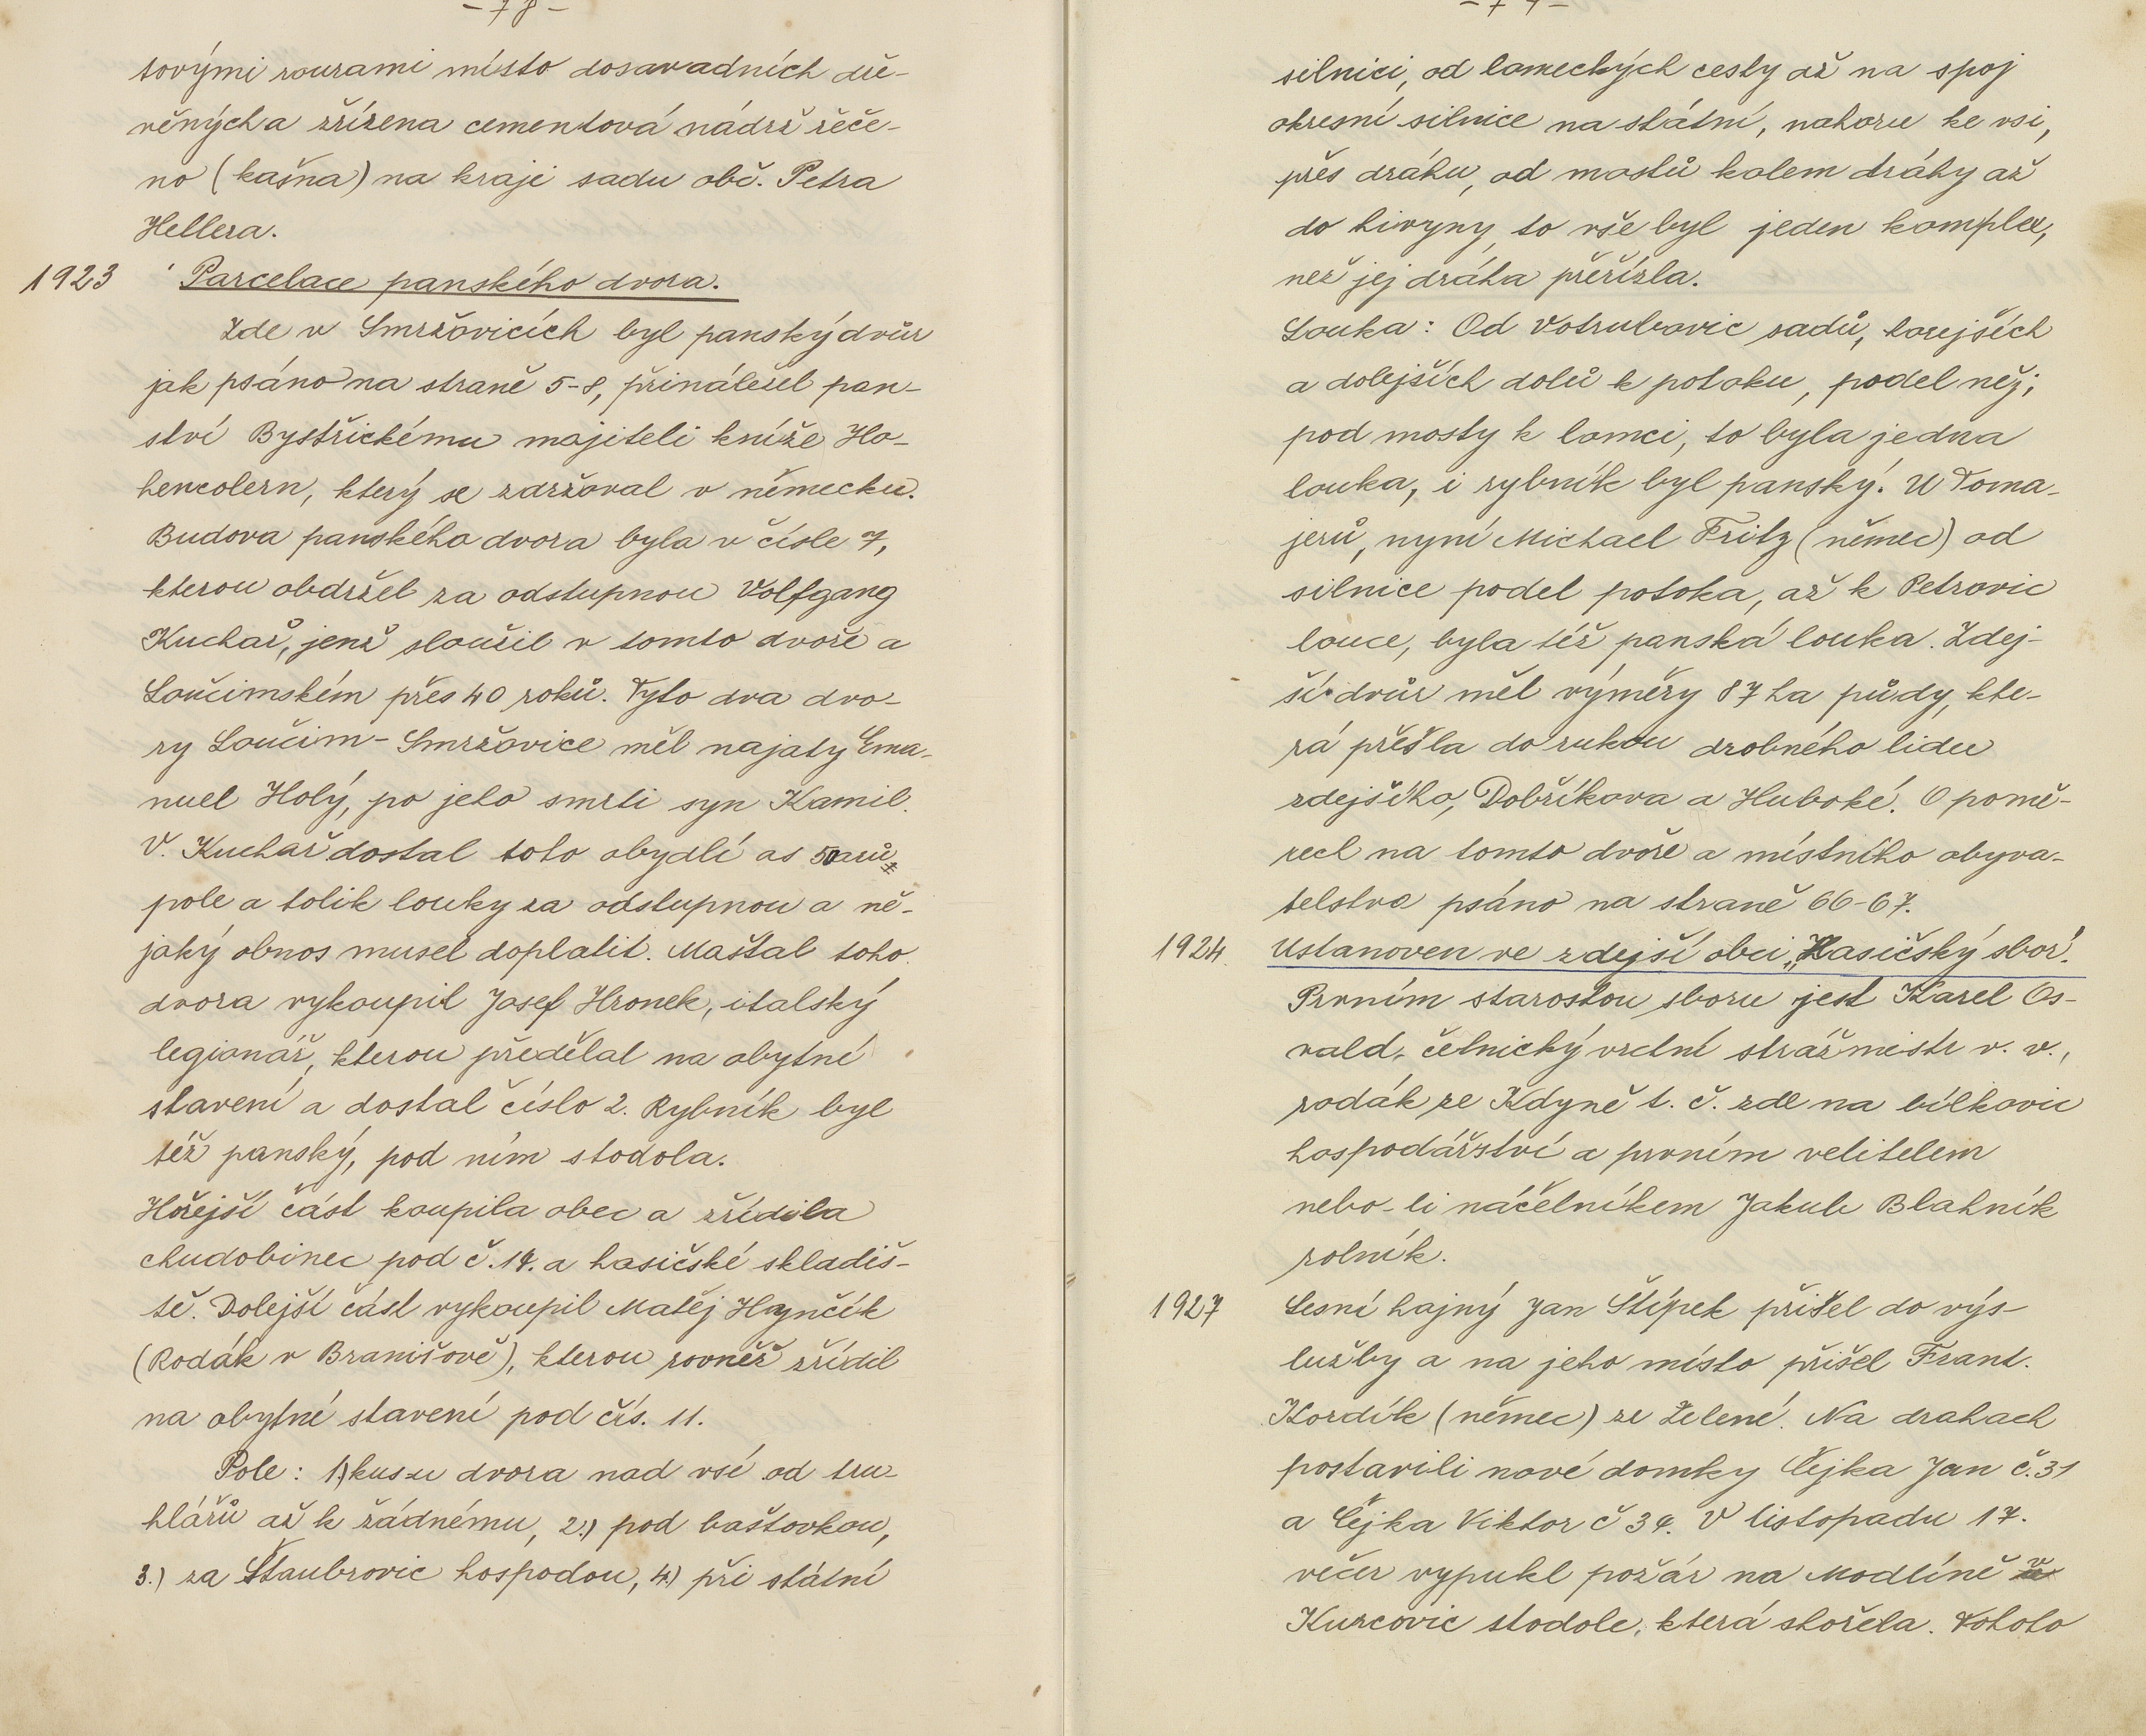 -78-
tovými rourami místo dosavadních dře-
věných a zřízena cementová nádrž řeče-
no (kašna) na kraji sadu obč. Petra
Hellera.
1923 Parcelace panského dvora.
Zde v Smržovicích byl panský dvůr
jak psáno na straně 5-8, přináležel pan-
ství Bystřickému majiteli kníže Ho-
hencolern, který se zdržoval v německu.
Budova panského dvora byla v čísle 7,
kterou obdržel za odstupnou Volfgang
Kuchař, jenž sloužil v tomto dvoře a
Loučimském přes 40 roků. Tyto dva dvo-
ry Loučim - Smržovice měl najaty Ema-
nuel Holý, po jeho smrti syn Kamil.
V. Kuchař dostal toto obydlí as 50 arů
pole a tolik louky za odstupnou a ně-
jaký obnos musel doplatit. Maštal toho
dvora vykoupil Josef Hronek, italský
legionář, kterou předělal na obytné
stavení a dostal číslo 2. Rybník byl
též panský, pod ním stodola.
Hořejší část koupila obec a zřídila
chudobinec pod č. 14. a hasičské skladiš-
tě. Dolejší část vykoupil Matěj Hynčík
(Rodák v Branišově), kterou rovněž zřídil
na obytné stavení pod čís. 11.
Pole: 1.) kus ze dvora nad vsí od tru-
hlářů až k žádnému, 2.) pod baštovkou,
3.) za Štaubrovic hospodou, 4.) při státní
-79-
silnici, od lomeckých cesty až na spoj
okresní silnice na státní, nahoru ke vsi,
přes dráhu, od mostů kolem dráhy až
do hivyny, to vše byl jeden komplex,
než jej dráha přeřízla.
Louka: Od Votrubovic sadů, horejších
a dolejších dolů k potoku, podel něj;
pod mosty k lomci, to byla jedna
louka, i rybník byl panský. U Toma-
jerů, nyní Michael Fritz (němec) od
silnice podel potoka, až k Petrovic
louce, byla též panská louka. Zdej-
ší dvůr měl výměry 87 ha půdy, kte-
rá přešla do rukou drobného lidu
zdejšího, Dobříkova a Hluboké. O pomě-
rech na tomto dvoře a místního obyva-
telstva psáno na straně 66-67.
1924. Ustanoven ve zdejší obci „Hasičský sbor".
Prvním starostou sboru jest Karel Os-
vald, četnický vrchní strážmistr v. v.,
rodák ze Kdyně t. č. zde na bílkovic
hospodářství a prvním velitelem
nebo-li náčelníkem Jakub Blahník
rolník.
1927 Lesní hajný Jan Štípek přišel do výs-
lužby a na jeho místo přišel Frant.
Kordík (němec) ze Zelené. Na drahach
postavili nové domky Čejka Jan č. 31
a Čejka Viktor č 34. V listopadu 17.
večer vypukl požár na Modlíně v
Kurcovic stodole, která shořela. Tohoto